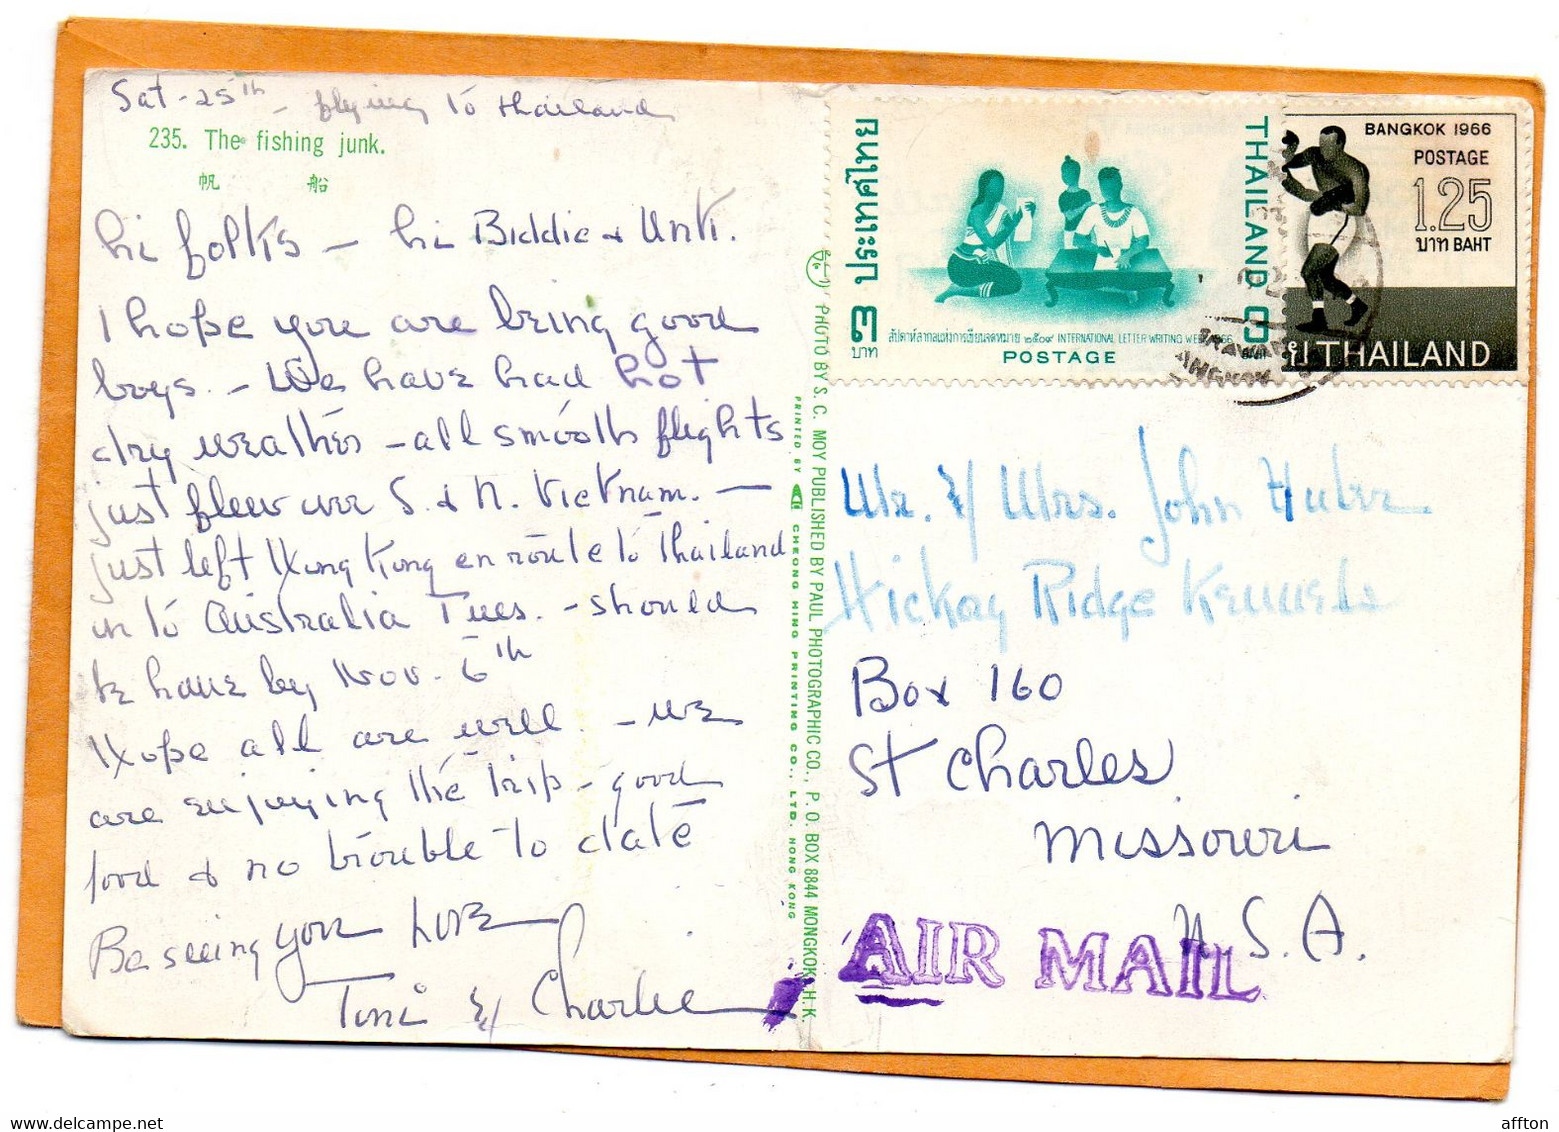 Sat - 25th - flying to Thailand
235. The fishing junk.
帆 船
hi folks - hi Biddie & Unk.
I hope you are being good
boys. - We have had hot
dry weather - all smooth flights
just flew over S. & N. Vietnam. -
just left Hong Kong en route to Thailand
on to Australia Tues. - should
be home by Nov. 6th
Hope all are well - we
are enjoying the trip - good
food & no trouble to date
Be seeing you Love
Toni & Charlie
PHOTO BY S. C. MOY PUBLISHED BY PAUL PHOTOGRAPHIC CO., P. O. BOX 8844 MONGKOK, H. K.
PRINTED BY CHEONG MING PRINTING CO., LTD. HONG KONG
ประเทศไทย
๓ บาท
THAILAND 3
สัปดาห์สากลแห่งการเขียนจดหมาย ๒๕๐๙ INTERNATIONAL LETTER WRITING WEEK 1966
POSTAGE
BANGKOK 1966
POSTAGE
1.25
บาท BAHT
THAILAND
Mr. & Mrs. John Huber
Hickory Ridge Kennels
Box 160
St Charles
Missouri
U. S. A.
AIR MAIL
www.delcampe.net
affton